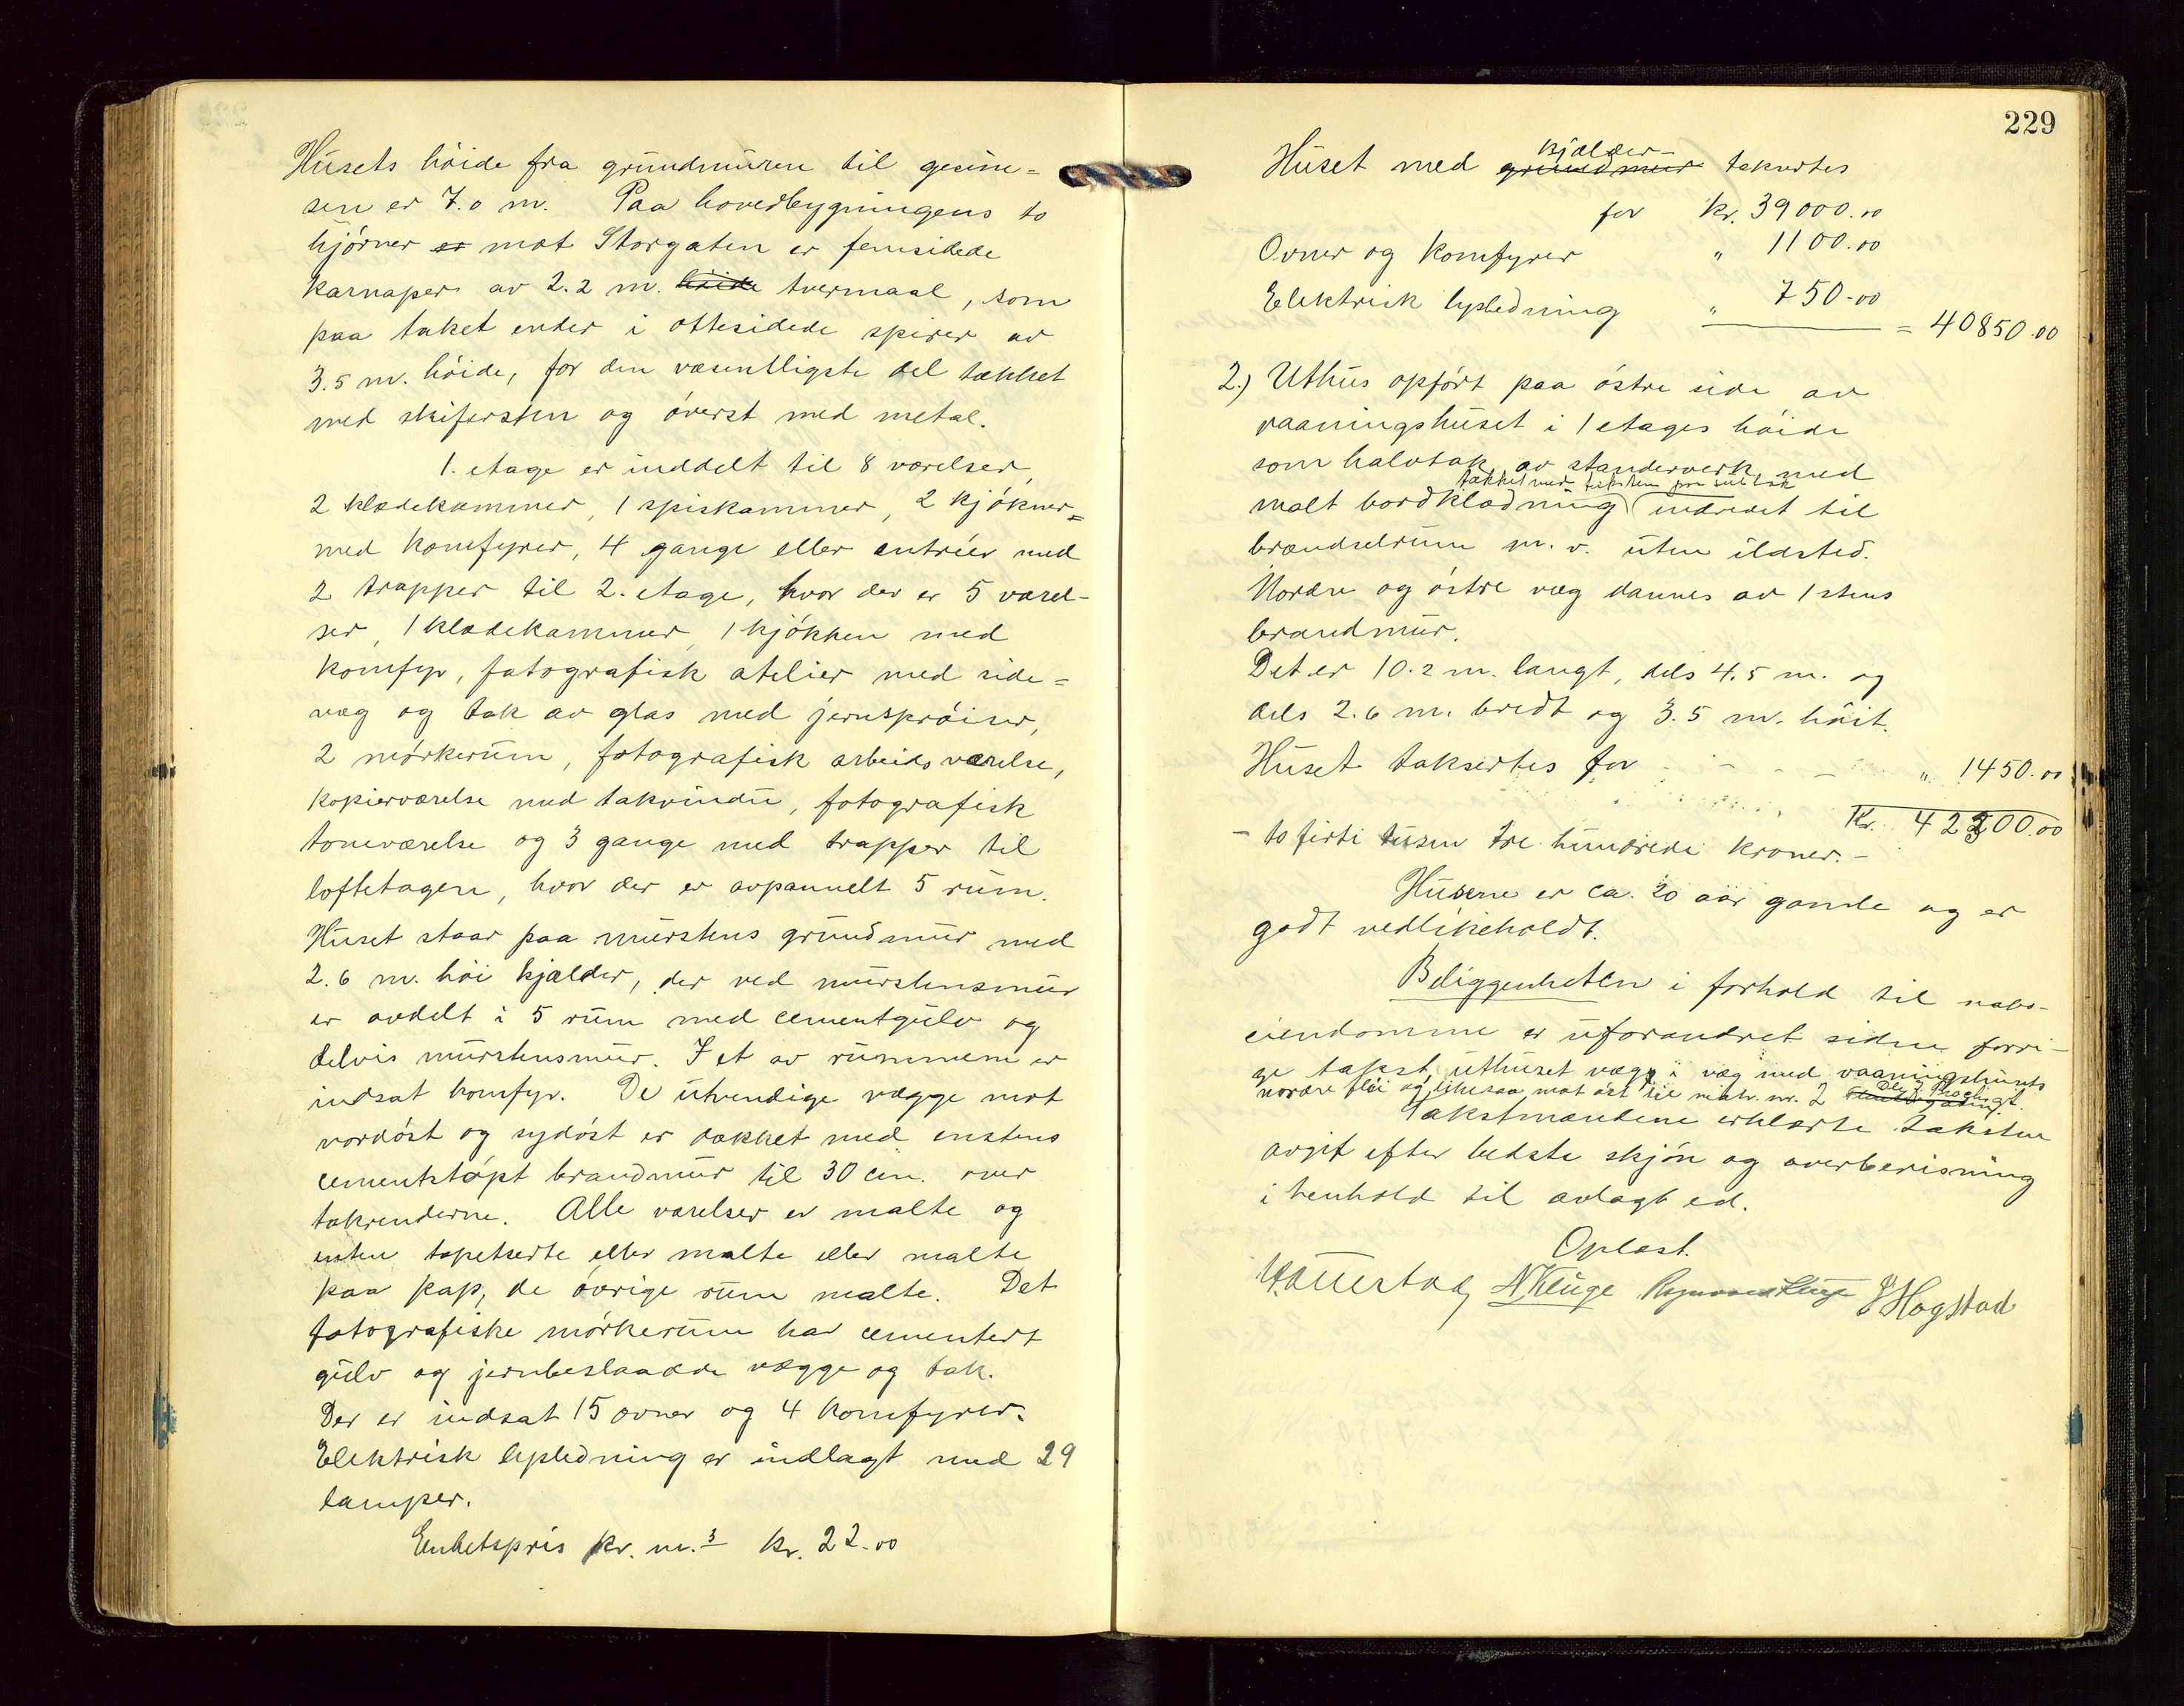 Husets höide fra grundmuren til gesim=
sen er 7.0 m. Paa hovedbygningens to
hjörner er mot Storgaten er femsidede
karnaper av 2.2 m. höide tvermaal, som
paa taket ender i ottesidede spirer av
3.5 m. höide, for den væsentligste del tækket
med skifersten og överst med metal.
1. etage er inddelt til 8 værelser,
2 klædekammer, 1 spiskammer, 2 kjökner=
med komfyrer, 4 gange eller entréer med
2 trapper til 2. etage, hvor der er 5 værel-
ser, 1 klædekammer, 1 kjökken med
komfyr, fotografisk atelier med side=
væg og tak av glas med jernspröiser,
2 mörkerum, fotografisk arbeidsværelse,
kopierværelse med takvindu, fotografisk
toneværelse og 3 gange med trapper til
loftetagen, hvor der er avpannelt 5 rum.
Huset staar paa murstens grundmur med
2.6 m. höi kjælder, der ved murstensmur
er avdelt i 5 rum med cementgulv og
delvis murstensmur. I et av rummene er
indsat komfyr. De utvendige vægge mot
nordöst og sydöst er dækket med enstens
cementstöpt brandmur til 30 cm. over
takrenderne. Alle værelser er malte og
enten tapetserte eller malte eller malte
paa pap, de övrige rum malte. Det
fotografiske mörkerum har cementert
gulv og jernbeslaadde vægge og tak.
Der er indsat 15 ovner og 4 komfyrer.
Elektrisk lysledning er indlagt med 29
lamper.
Enhetspris pr. m.3 kr. 22.00
229
kjælder-
Huset med grundmur takseres
for kr. 39000.00
Ovner og komfyrer " 1100.00
Elektrisk lysledning " 750-00
= 40850.00
2.) Uthus opfört paa östre side av
vaaningshuset i 1 etages höide
som halvtak, av standerverk, med
tækket med taksten paa sutak
malt bordklædning indredet til
brændselrum m. v. uten ildsted.
Nordre og östre væg dannes av 1 stens
brandmur.
Det er 10.2 m. langt, dels 4.5 m. og
dels 2.6 m. bredt og 3.5 m. höit.
Huset takseres for - - - - - " 1450.00
Kr. 42300.00
- to firti tusen tre hundrede kroner. -
Husene er ca. 20 aar gamle og er
godt vedlikeholdt.
Beliggenheten i forhold til nabo-
eiendomme er uforandret siden forri-
ge takst, uthuset væg i væg med vaaningshusets
nordre flöi og likesaa mot öst til matr. nr. 2
Takstmændene erklærte taksten
avgit efter bedste skjön og overbevisning
i henhold til avlagt ed.
Oplæst.
N Kluge J Hogstad